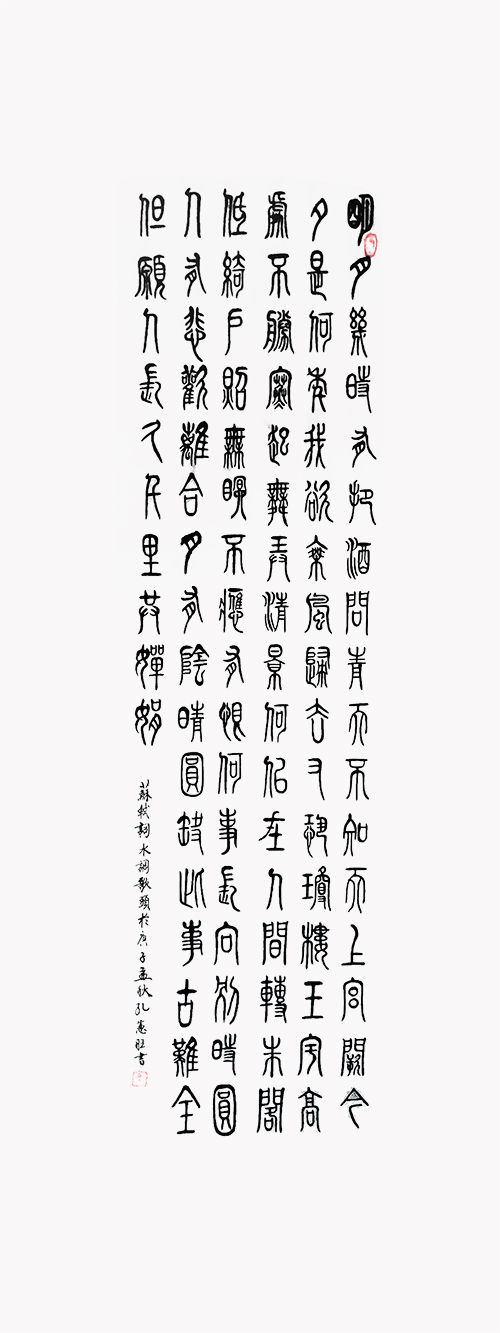 明月幾時有把酒問青天不知天上宮闕今
夕是何年我欲乘風歸去又恐瓊樓玉宇高
處不勝寒起舞弄清景何似在人間轉朱閣
低綺戶照無眠不應有恨何事長向別時圓
人有悲歡離合月有陰晴圓缺此事古難全
但願人長久千里共嬋娟
蘇軾詞水調歌頭於庚子孟秋孔憲旺書